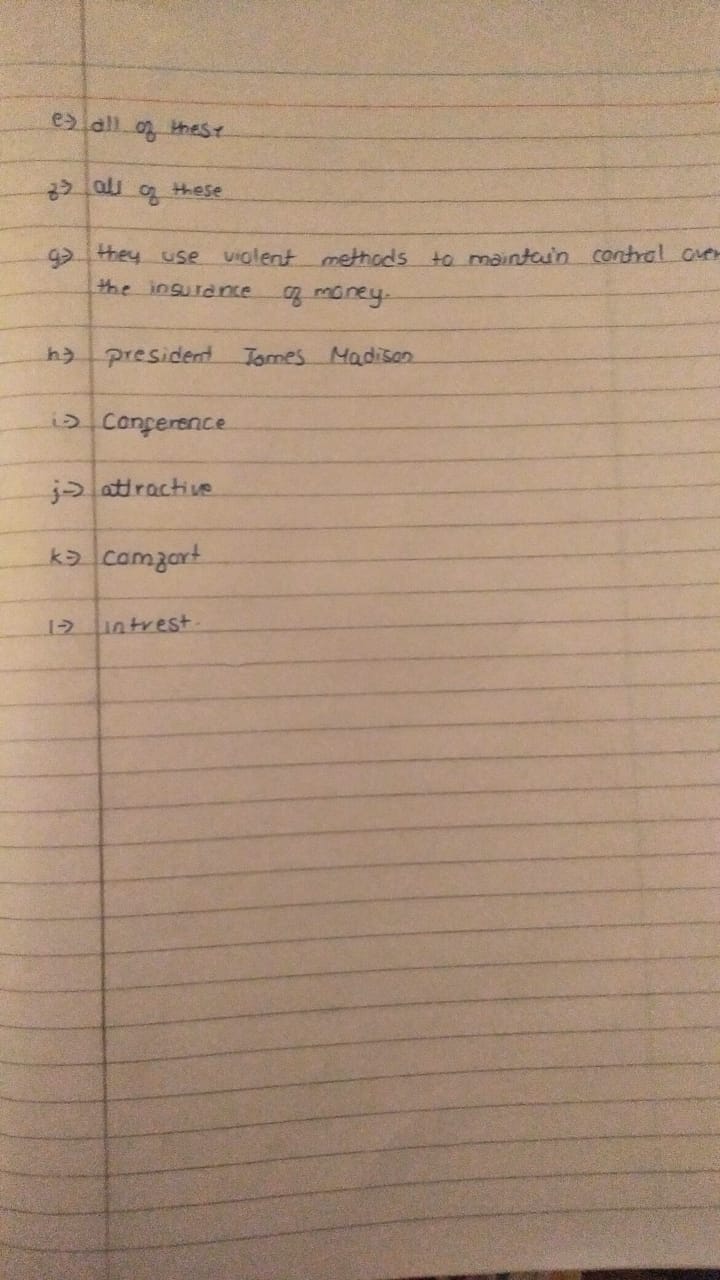 e→ all of these
f→ all of these
g→ they use violent methods to maintain control over
the insurance of money.
h→ president James Madison
i→ Conference
j→ attractive
k→ comfort
l→ intrest.